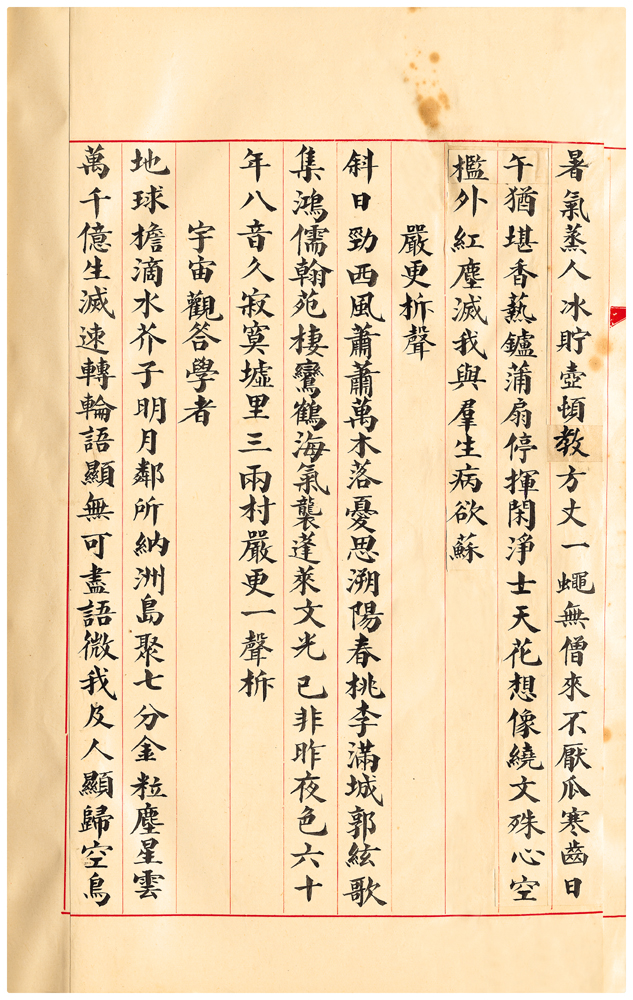 暑氣蒸人冰貯壺頓教方丈一蠅無僧來不厭瓜寒齒日
午猶堪香爇鑪蒲扇停揮閑淨士天花想像繞文殊心空
檻外紅塵滅我與羣生病欲蘇
嚴更柝聲
斜日勁西風蕭蕭萬木落憂思溯陽春桃李滿城郭絃歌
集鴻儒翰苑棲鸞鶴海氣襲蓬萊文光已非昨夜色六十
年八音久寂寞墟里三兩村嚴更一聲柝
宇宙觀答學者
地球擔滴水芥子明月鄰所納洲島聚七分金粒塵星雲
萬千億生滅速轉輪語顯無可盡語微我及人顯歸空鳥